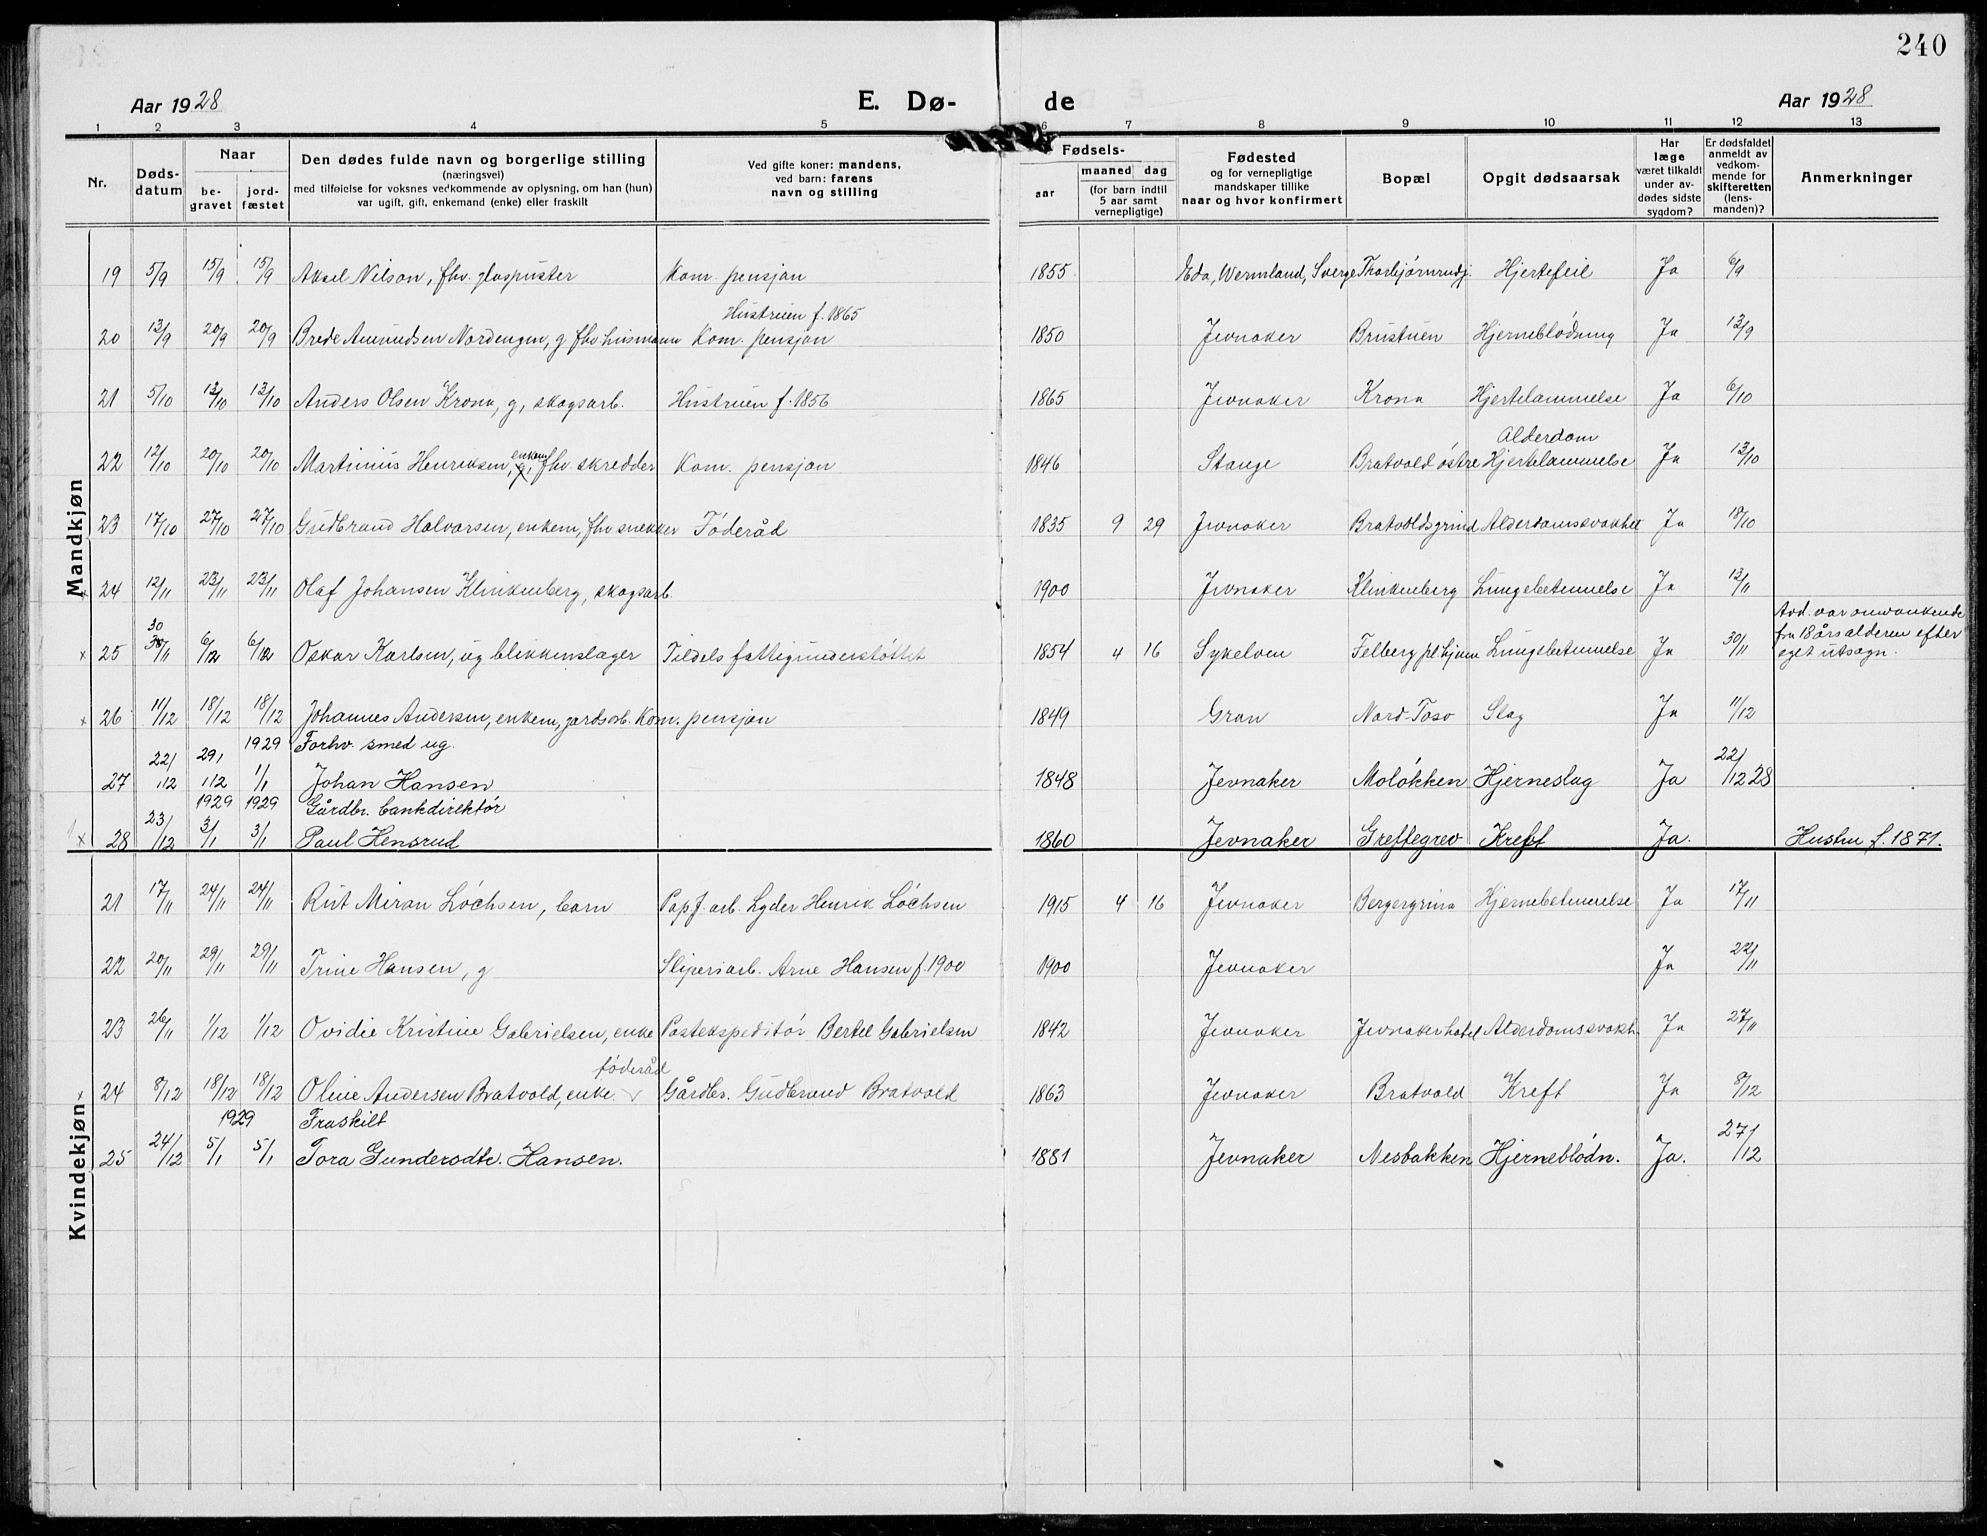 240
Aar 1928
E. Dø-
de
Aar 1928
1 2 3 4 5 6 7 8 9 10 11 12 13
Nr.
Døds-
datum
Naar
be-
gravet
jord-
fæstet
Den dødes fulde navn og borgerlige stilling
(næringsvei)
med tilføielse for voksnes vedkommende av oplysning, om han (hun)
var ugift, gift, enkemand (enke) eller fraskilt
Ved gifte koner: mandens,
ved barn: farens
navn og stilling
Fødsels-
aar
maaned dag
(for barn indtil
5 aar samt
vernepligtige)
Fødested
og for vernepligtige
mandskaper tillike
naar og hvor konfirmert
Bopæl
Opgit dødsaarsak
Har
læge
været tilkaldt
under av-
dødes sidste
sygdom?
Er dødsfaldet
anmeldt av
vedkom-
mende for
skifteretten
(lens-
manden)?
Anmerkninger
Mandkjøn
19 5/9 15/9 15/9 Aksel Nilson, fhv. glaspuster Kom. pensjon 1855 Eda, Wermland, Sverge Thorbjørnrudj. Hjertefeil Ja 6/9
Hustruen f. 1865
20 13/9 20/9 20/9 Brede Amundsen Nordengen, g fhv. husmann Kom. pensjon 1850 Jevnaker Brustuen Hjerneblødning Ja 13/9
21 5/10 13/10 13/10 Anders Olsen Krona, g, skogsarb. Hustruen f. 1856 1865 Jevnaker Krona Hjertelammelse Ja 6/10
enkem Alderdom
22 12/10 20/10 20/10 Martinius Henriksen, g, fhv. skredder Kom. pensjon 1846 Stange Bratvold østre Hjertelammelse Ja 13/10
23 17/10 27/10 27/10 Gudbrand Halvorsen, enkem, fhv snekker Føderåd 1835 9 29 Jevnaker Bratvoldsgrind Alderdomssvakhet Ja 18/10
x 24 12/11 23/11 23/11 Olaf Johansen Klinkenberg, skogsarb. 1900 Jevnaker Klinkenberg Lungebetennelse Ja 13/11
x 25 30/11 6/12 6/12 Oskar Karlsen, ug blikkenslager Tildels fattigunderstøttet 1854 4 16 Sykelven Felberg pl.hjem Lungebetennelse Ja 30/11 Avd. var omvankende
fra 18 års alderen efter
eget utsagn.
x 26 11/12 18/12 18/12 Johannes Andersen, enkem, jordsarb. Kom. pensjon 1849 Gran Nord-Toso Slag Ja 11/12
1929 Forhv. smed ug.
27 22/12 29/12 1/1 Johan Hansen 1848 Jevnaker Moløkken Hjerneslag Ja 22/12 28
1929 1929 Gårdbr. bankdirektør
x 28 23/12 3/1 3/1 Paul Hensrud 1860 Jevnaker Greftegrev Kreft Ja. Hustru f. 1871.
Kvindekjøn
21 17/11 24/11 24/11 Rut Miran Løchsen, barn Papf. arb. Lyder Henrik Løchsen 1915 4 16 Jevnaker Bergergrina Hjernebetennelse Ja 17/11
22 20/11 29/11 29/11 Trine Hansen, g Sliperiarb. Arne Hansen f. 1900 1900 Jevnaker Ja 22/11
23 26/11 1/12 1/12 Ovidie Kristine Gabrielsen, enke Postekspeditør Bertel Gabrielsen 1842 Jevnaker Jevnaker hotel Alderdomssvakh. Ja 27/11
føderåd
x 24 8/12 18/12 18/12 Oline Andersen Bratvold, enke Gårdbr. Gudbrand Bratvold 1863 Jevnaker Bratvold Kreft Ja 8/12
1929 Fraskilt
25 24/12 5/1 5/1 Tora Gundersdtr. Hansen. 1881 Jevnaker Nesbakken Hjerneblødn. Ja. 27/12